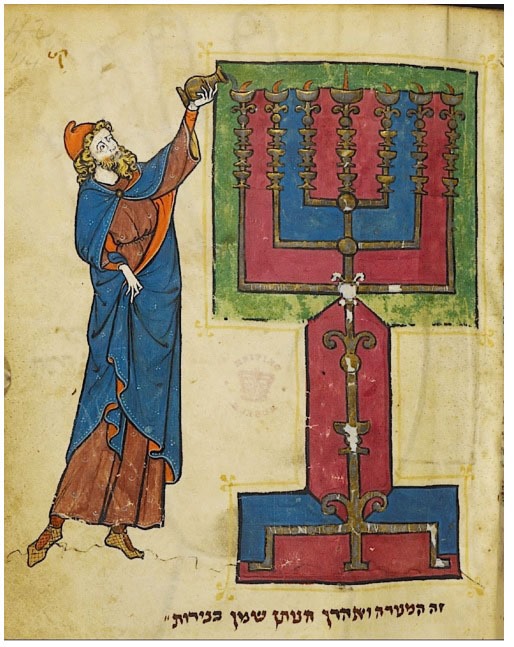 זה המנורה ואהרן הנותן שמן בנירות״